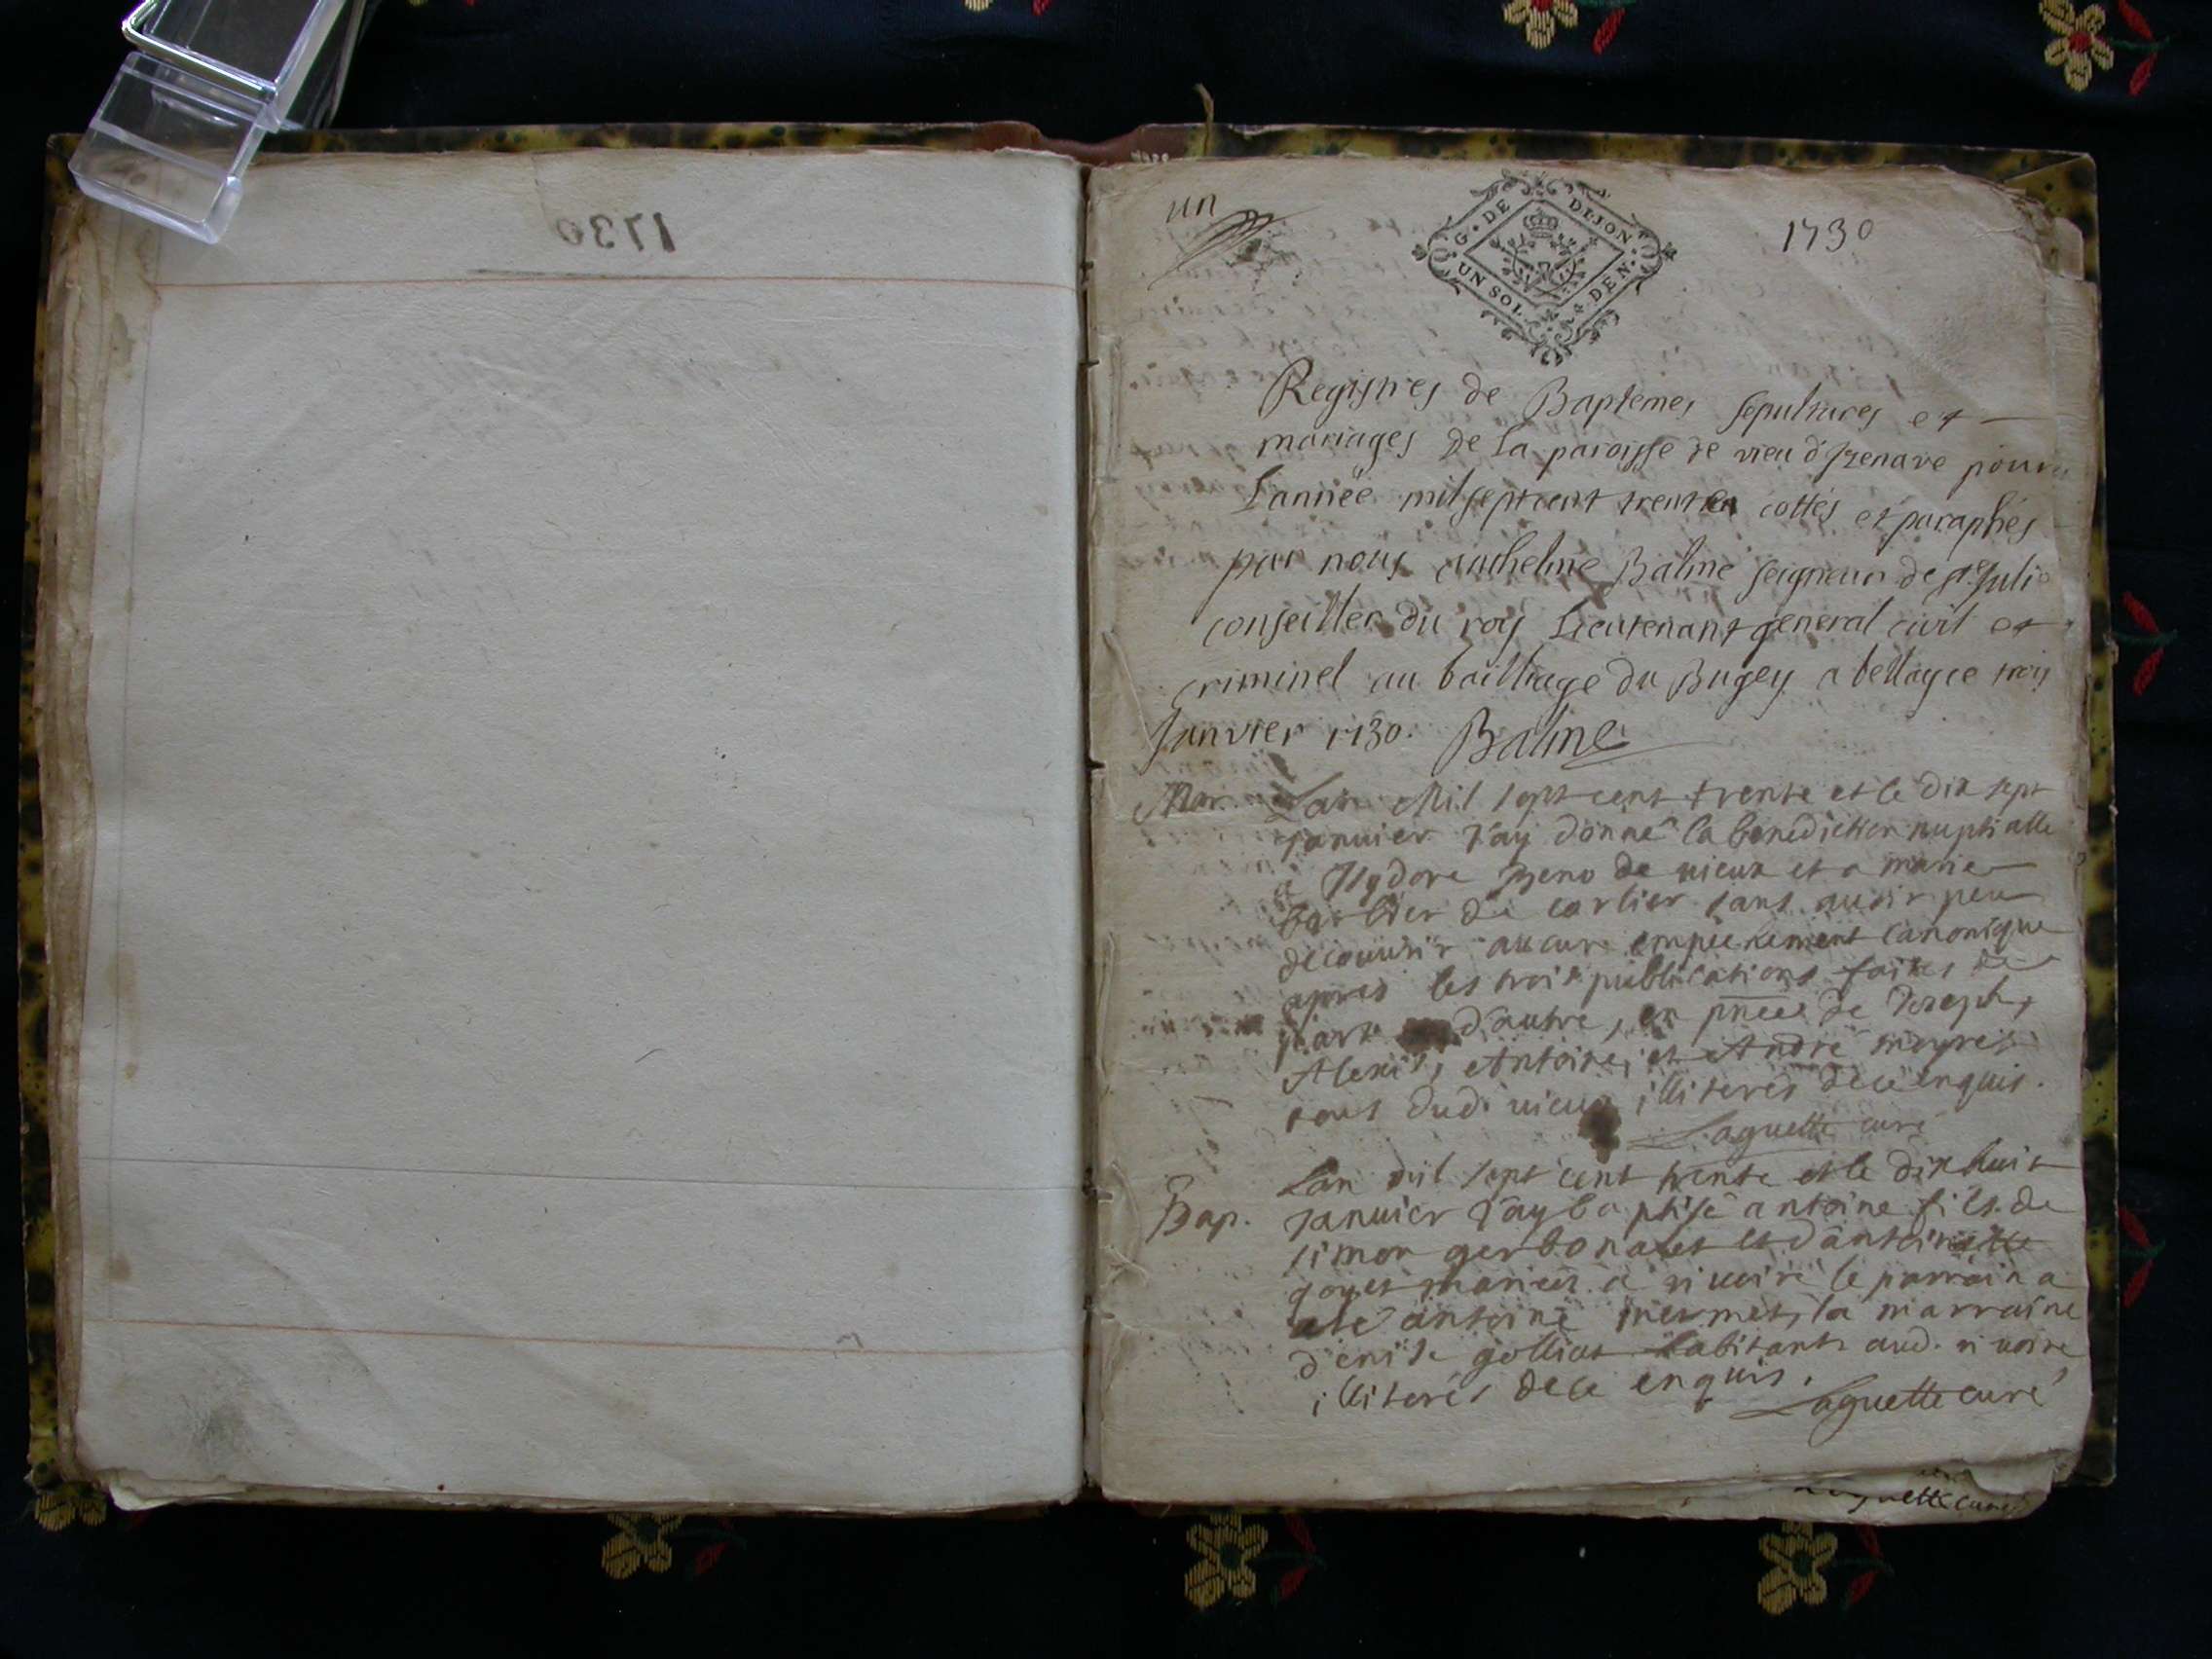 1730
un
G. DE DIJON
UN SOL. DEN.
1730
Registres de Baptemes sepultures et
mariages de La paroisse de vieu d'Izenave pour
Lannëe mil sept cent trente cottés et paraphés
par nous anthelme Balme seigneur de ste Julie
conseiller du roy Lieutenant general civil et
criminel au bailliage du Bugey a bellay ce trois
Janvier 1730. Balme
Mar. Lan Mil sept cent trente et le dix sept
janvier J'ay donné la benediction nuptialle
a Isydore Beno de vieux et a marie
barbier de corlier sans avoir peu
decouvrir aucun empechement canonique
apres les trois publications faites de
part d'autre, en pnce de Joseph,
Alexis, Antoine, et André
tous dud. vieux illiterés de ce enquis.
Laguette curé
Bap. Lan mil sept cent trente et le dix huit
Janvier J'ay baptisé antoine fils de
simon gerbonalet et d'antoinette
goyet mariés a rivoire le parrain a
eté antoine mermet, la marraine
denise golliat habitants aud. rivoire
illiterés de ce enquis.
Laguette curé
Laguette curé